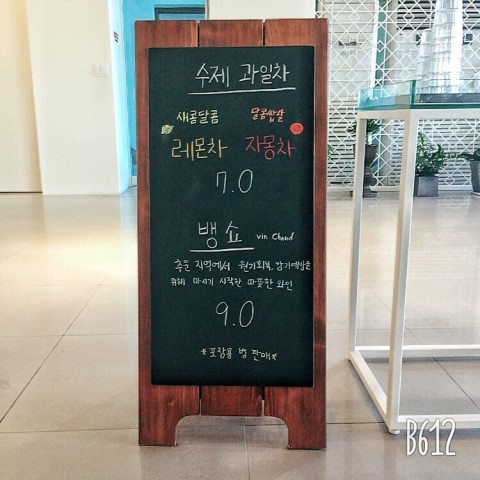 수제 과일차
새콤달콤 달콤쌉쌀
레몬차 자몽차
7.0
뱅쇼 vin Chaud
추운 지역에서 원기회복, 감기예방을
위해 마시기 시작한 따뜻한 와인
9.0
*포장용 병 판매*
B612